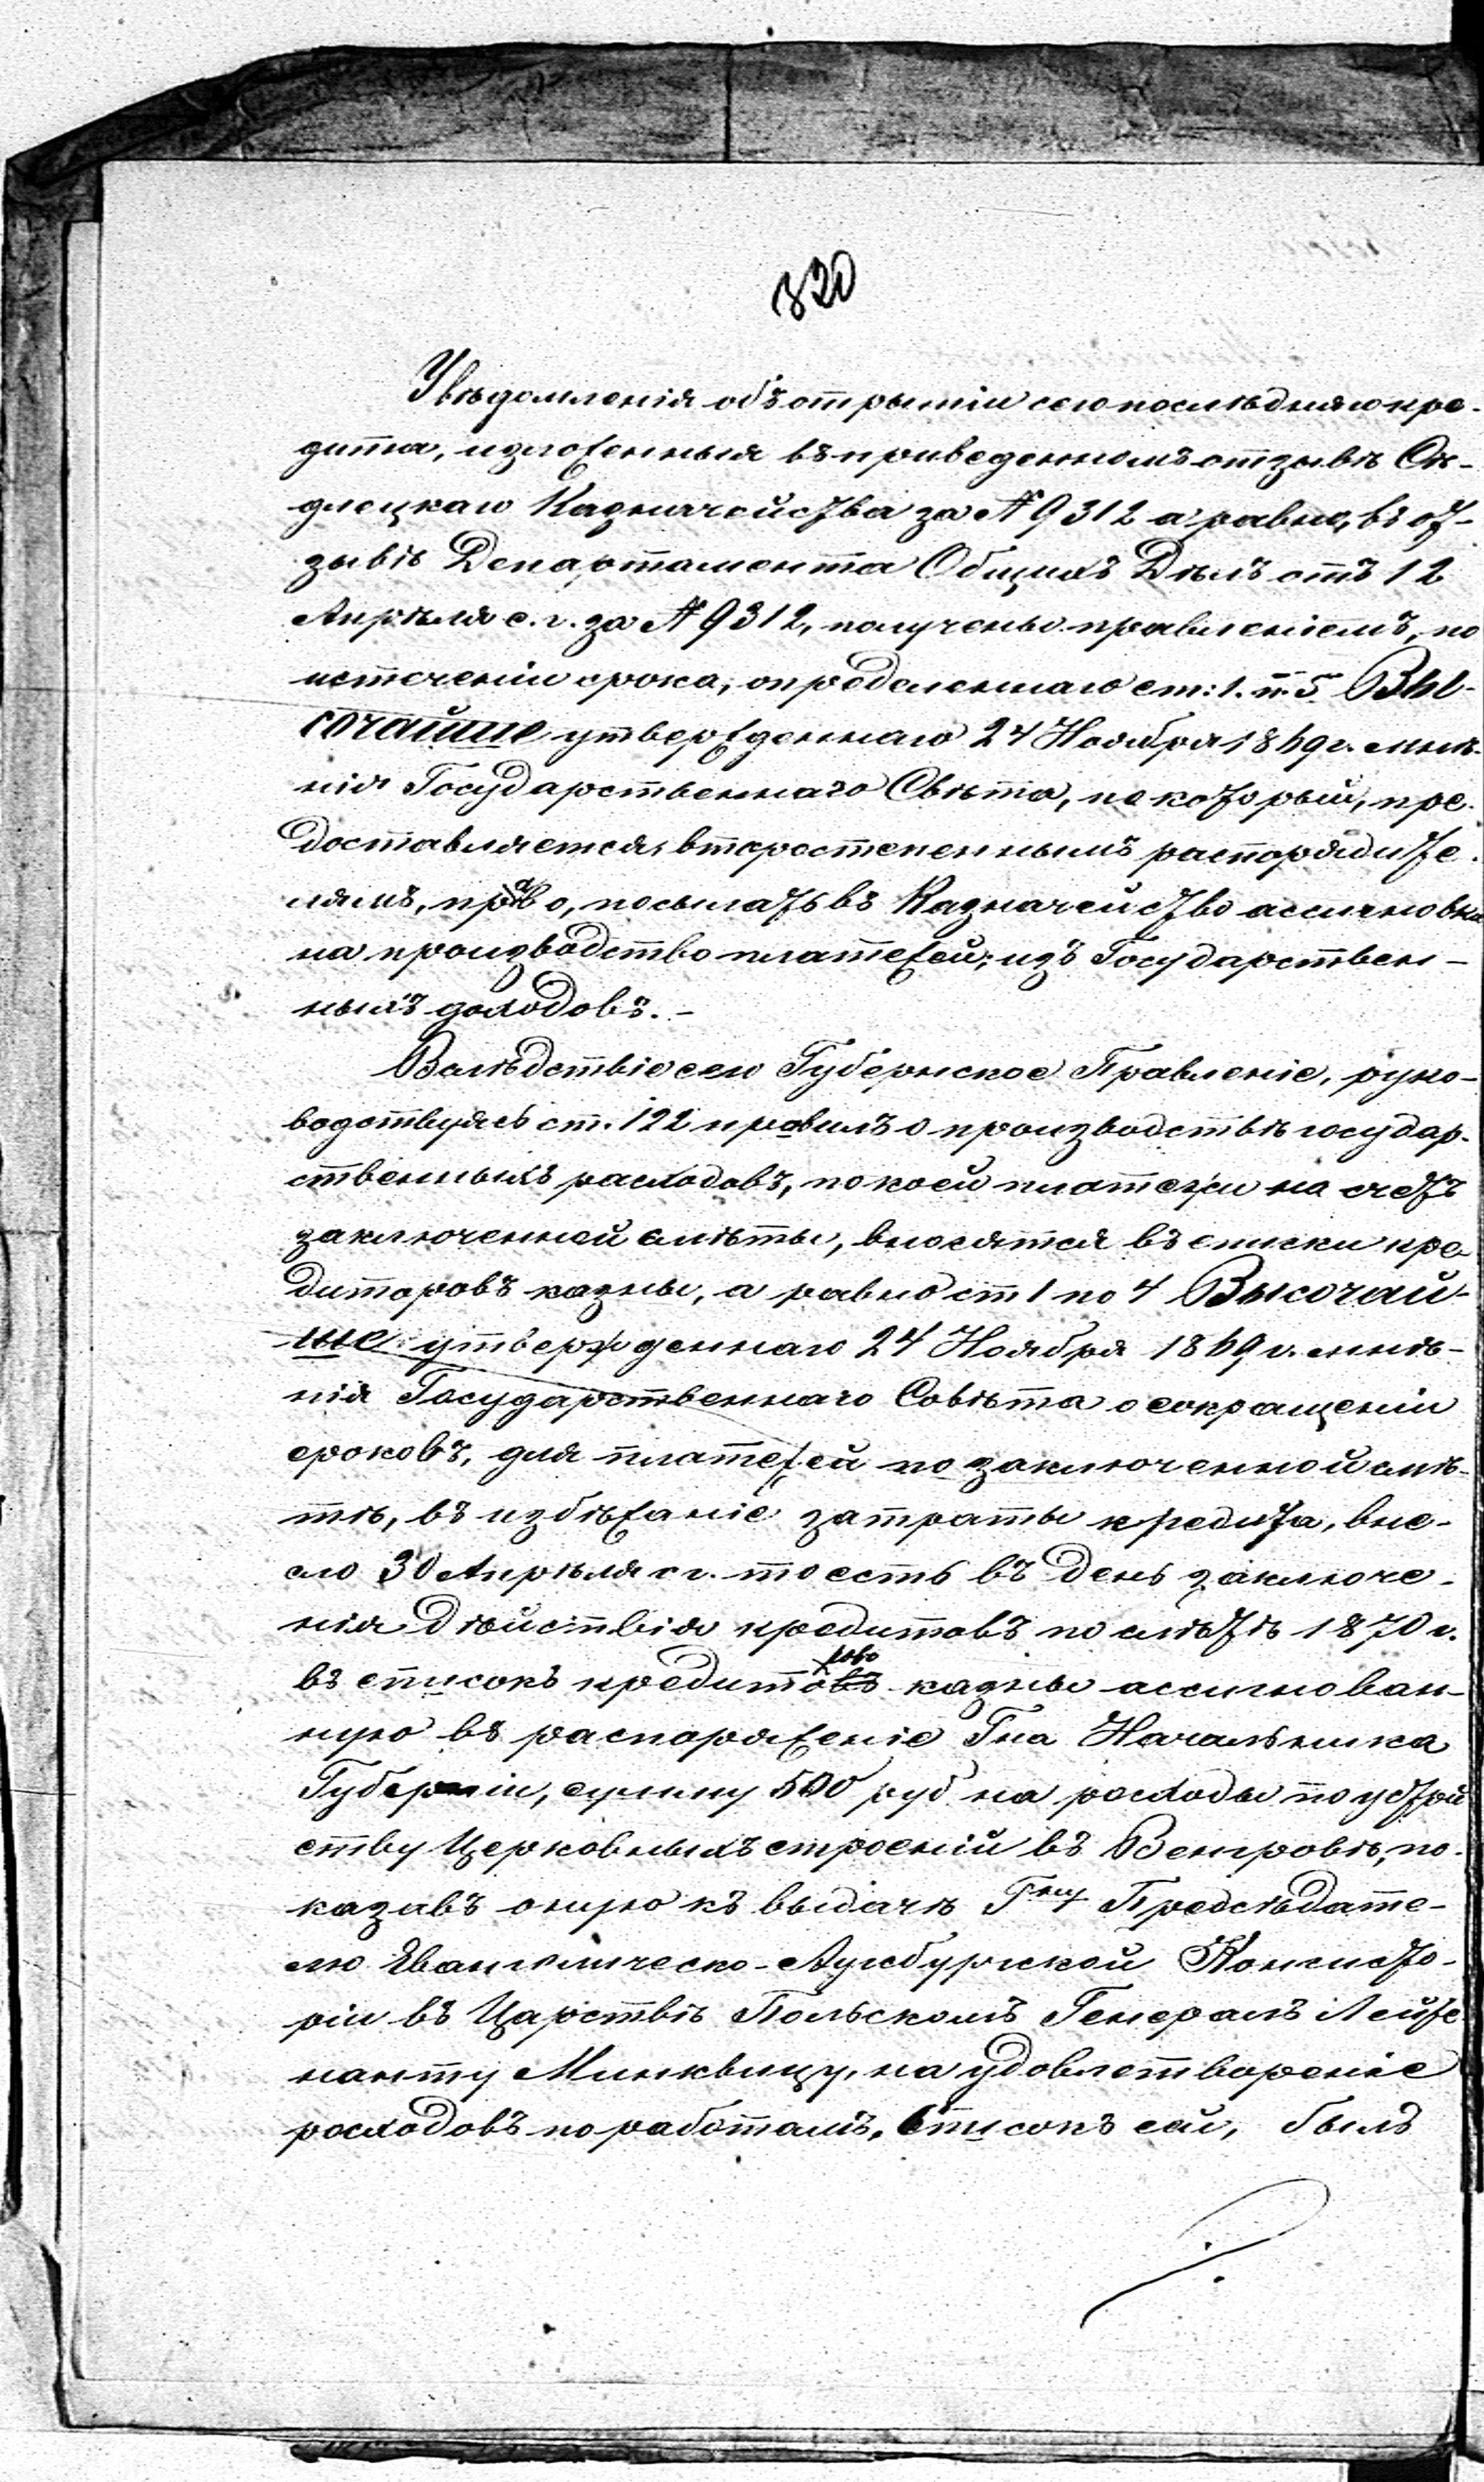 320
Увѣдомленія объ открытіи сего послѣдняго кре-
дита, изложенныя въ приведенномъ отзывѣ Сѣ-
длецкаго Казначейства за № 9312 а равно, въ от-
зывѣ Департамента Общихъ Дѣлъ отъ 12
Апрѣля с. г. за № 9312, получены правленіемъ, по
истеченіи срока, опредѣленнаго ст: 1. п. 5 Вы-
сочайше утвержденнаго 24 Ноября 1869 г. мнѣ-
нія Государственнаго Свѣта, по который, пре-
доставляется, второстепеннымъ распорядите-
лямъ, право, посылать въ Казначейство ассигновки
на производство платежей, изъ Государствен-
ныхъ доходовъ. -
Вслѣдствіе сего Губернское Правленіе, руко-
водствуясь ст. 122 правилъ о производствѣ государ-
ственныхъ расходовъ, по коей платежи на счетъ
заключенной смѣты, вносятся въ списки кре-
диторовъ казны, а равно ст 1 по 4 Высочай-
ше утвержденнаго 24 Ноября 1869 г. мнѣ-
нія Государственнаго Совѣта о сокращеніи
сроковъ, для платежей по заключенной смѣ-
тѣ, въ избѣжаніе затраты кредита, вне-
сло 30 Апрѣля с г. то есть въ день заключе-
нія дѣйствія кредитовъ по смѣтѣ 1870 г.
въ списокъ кредиторовъ казны ассигнован-
ную въ распоряженіе Гна Начальника
Губерніи, сумму 500 руб на расходы по устрой
ству Церковныхъ строеній въ Венгровѣ, по-
казавъ оную къ выдачѣ Гну Предсѣдате-
лю Евангелическо-Аугсбургской Консисто-
ріи въ Царствѣ Польскомъ Генералъ Лейте
нанту Минквицу, на удовлетвореніе
расходовъ по работамъ. Списокъ сей, былъ